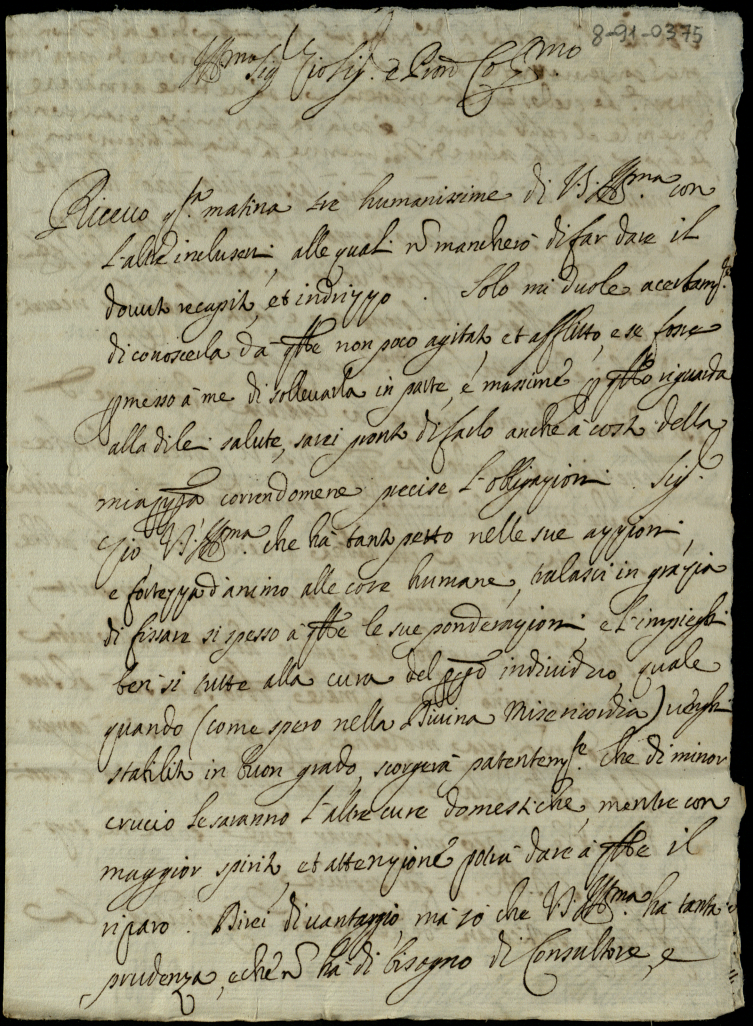 8-91-0375
Ill.mo Sig.r Zio Sig.r e Pron Col.mo
Ricevo q.sta matina tre humanissime di V.S. Ill.ma con
l'altre incluseui, alle quali nō mancherò di far dare il
douuto recapito, et indrizzo. Solo mi duole acerbam.te
di conoscerla da q.ste non poco agitato, et afflitto, e se fosse
pmesso à me di solleuarla in parte, e massime p q.sto riguarda
alla di lei salute, sarei pronto di farlo anche à costo della
mia pp.a correndomene precise l'obligazioni. Sig.r
Zio V.S. Ill.ma che hà tanto petto nelle sue azzioni,
e fortezza d'animo alle cose humane, tralasci in grazia
di fissare si spesso à q.ste le sue ponderazioni, e l'impieghi
ben si tutte alla cura del pp.o individuo, quale
quando (come spero nella Diuina Misericordia) uenghi
stabilito in buon grado, scorgerà patentem.te che di minor
crucio le saranno l'altre cure domestiche, mentre con
maggior spirito, et attenzione potrà dare à q.ste il
riparo. Direi di vantaggio, mà sò che V.S. Ill.ma hà tanta
prudenza, e che nō hà di bisogno di Consultore, e